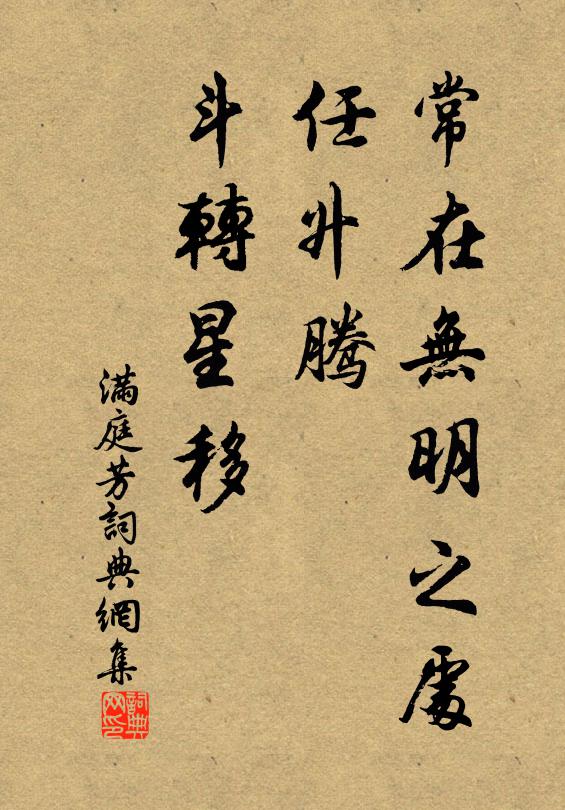 常在無明之處
任升騰
斗轉星移
滿庭芳詞典網集
詞典网印